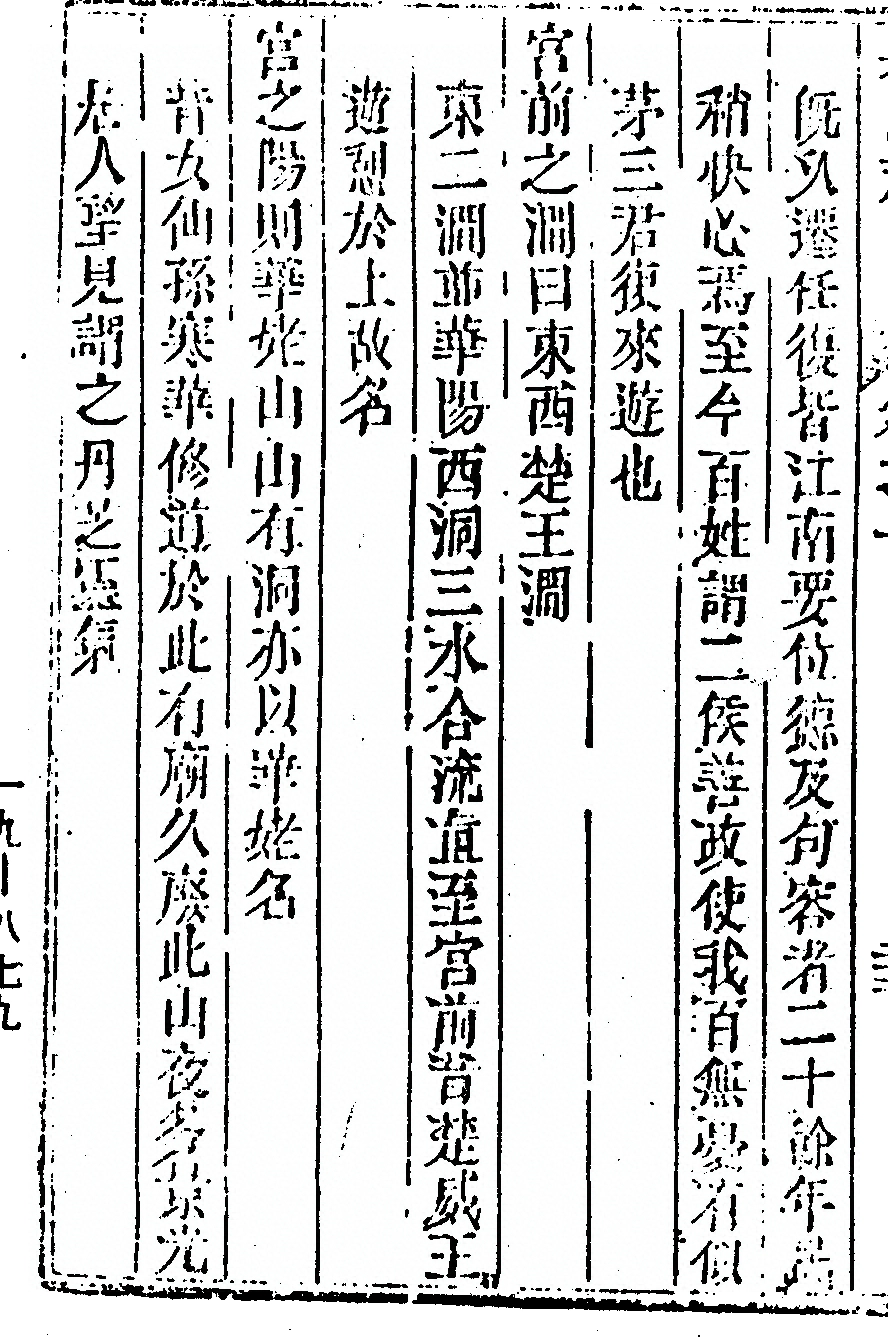 既以遷任復皆江南要位德及句容者二十餘年
稍快心焉至今百姓謂二侯善政使我百無憂有似
茅三君復來遊也
宮前之澗曰東西楚王澗
東二澗並華陽西洞三水合流直至宮前昔楚威王
遊憩於上故名
宮之陽則華姥山山有洞亦以華姥名
昔女仙孫寒華修道於此有廟久廢此山夜常有景光
居人望見謂之丹芝
一九—八七九